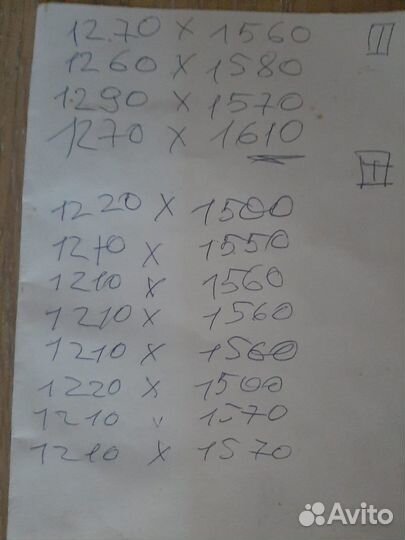 1270 x 1560
1260 x 1580
1290 x 1570
1270 x 1610
1220 x 1500
1210 x 1550
1210 x 1560
1210 x 1560
1210 x 1560
1220 x 1500
1210 " 1570
1210 x 1570
Avito